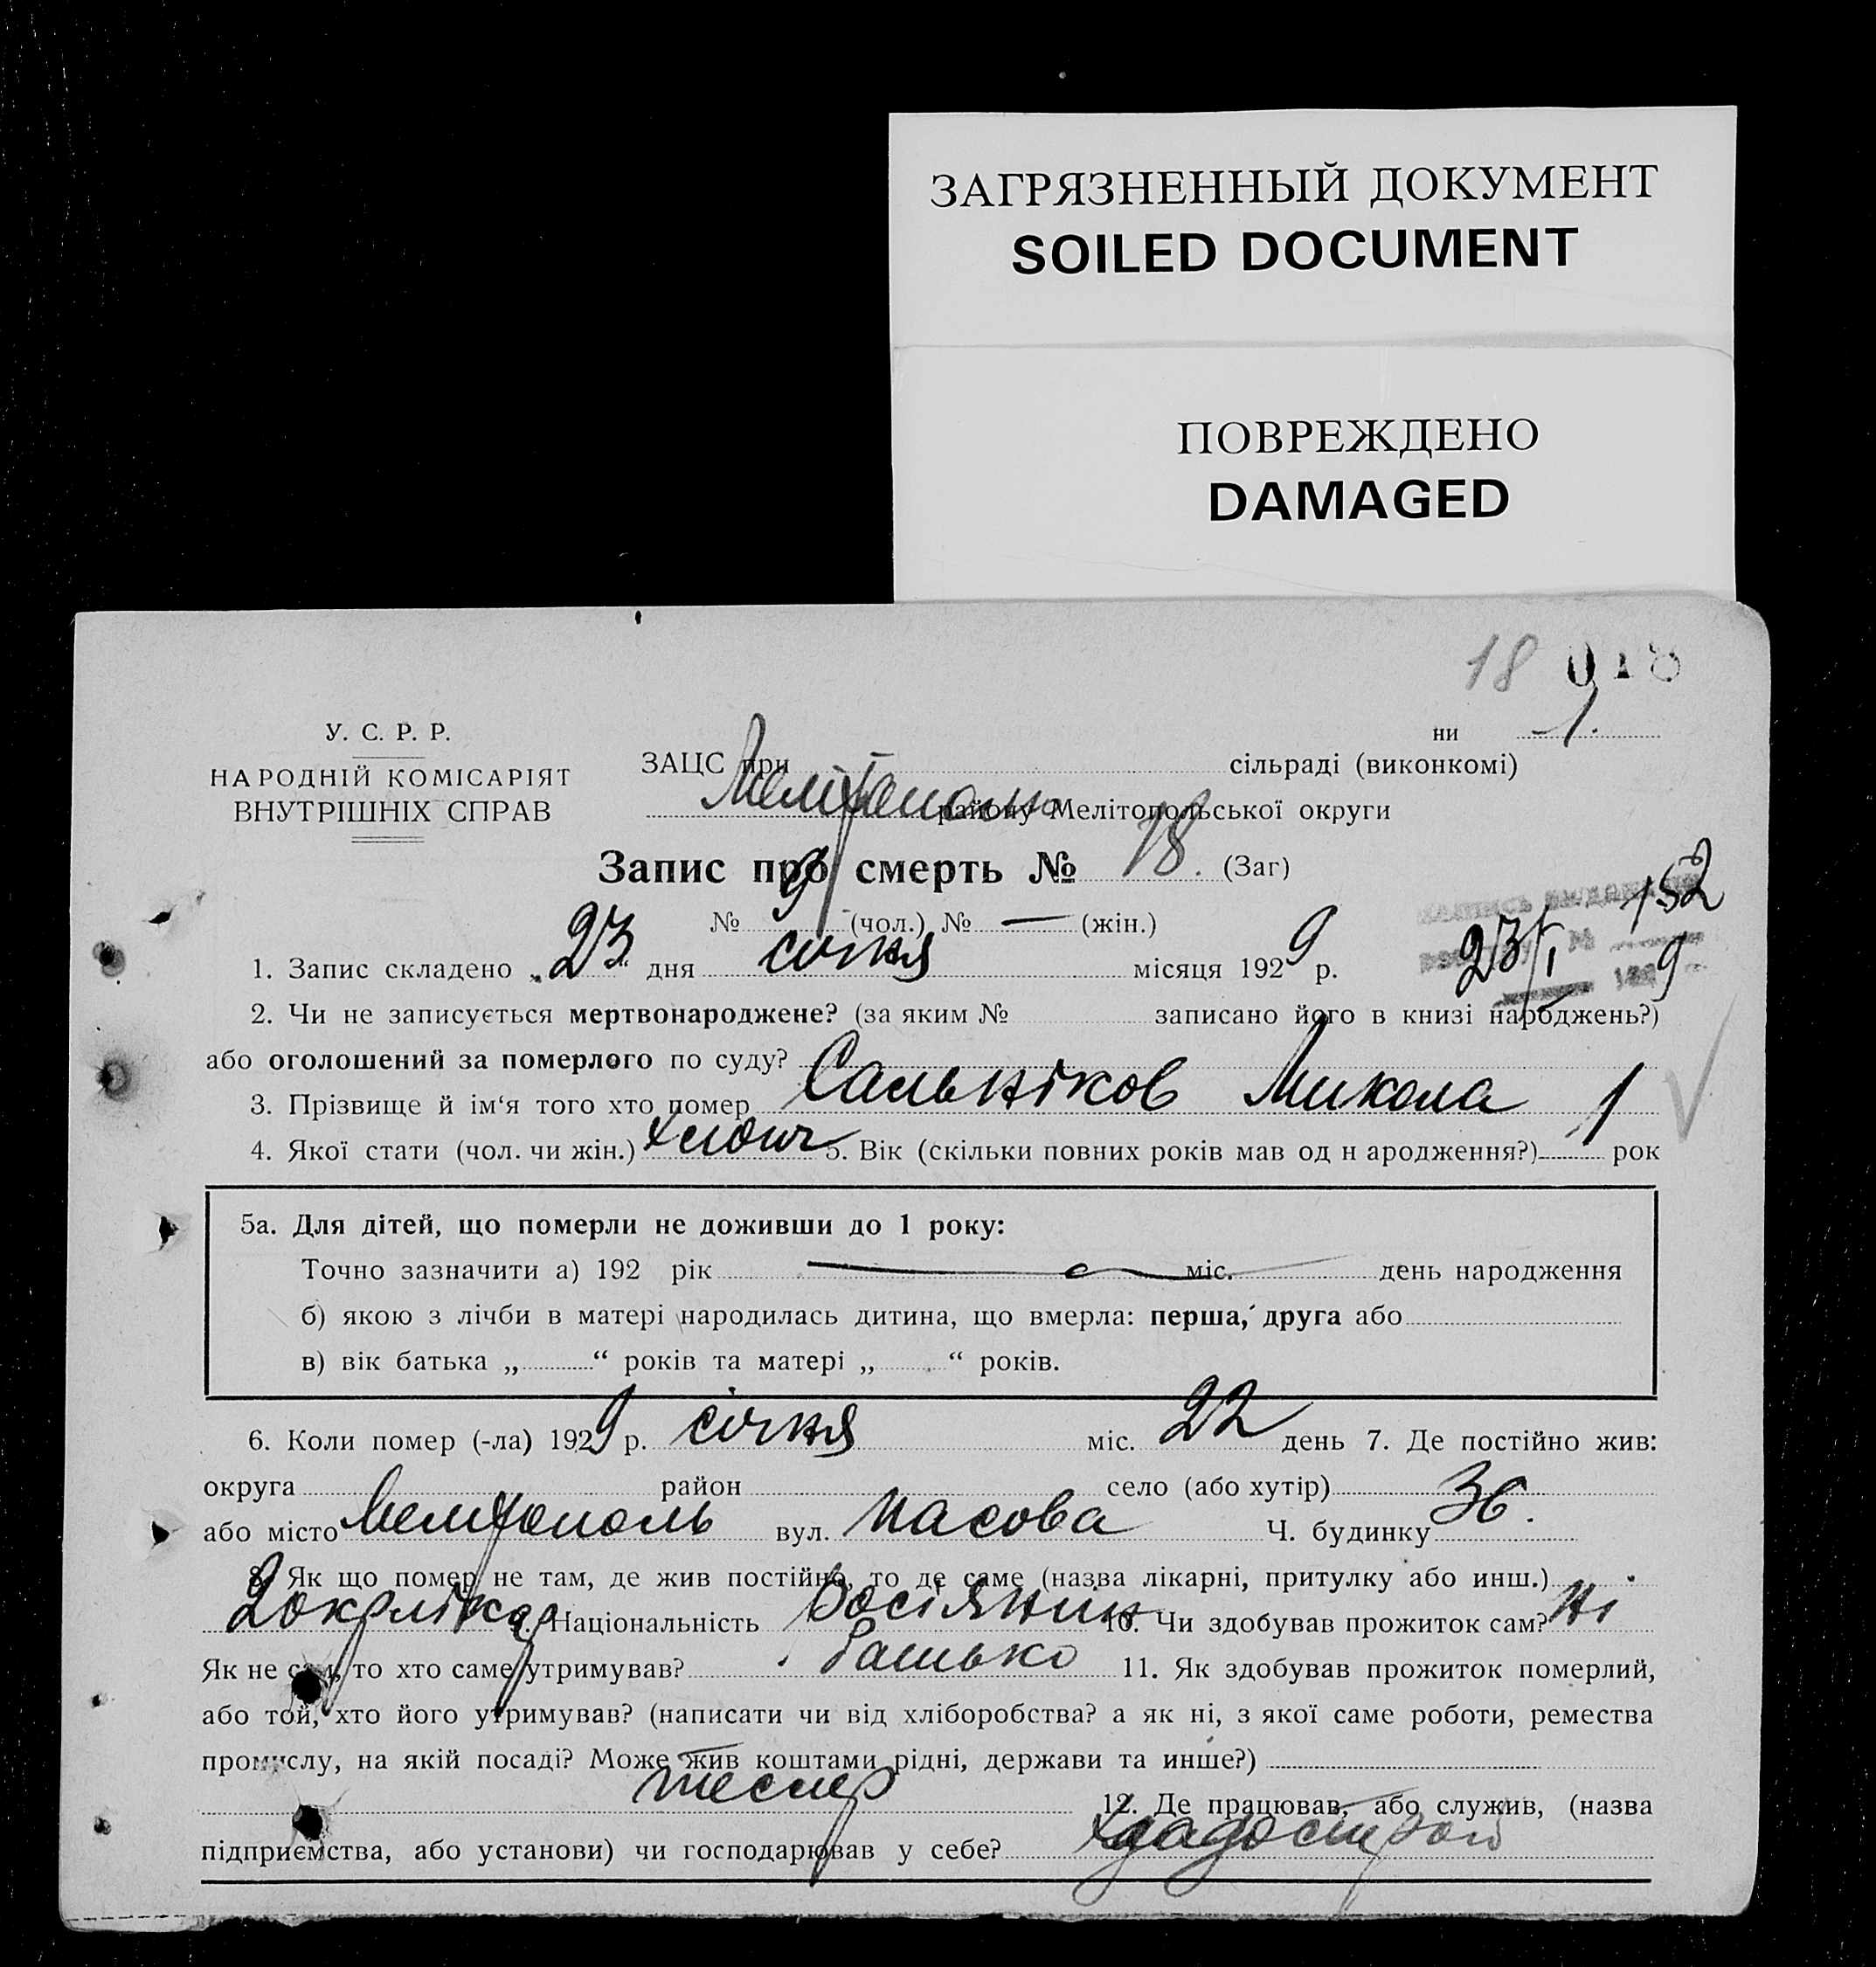 ЗАГРЯЗНЕННЫЙ ДОКУМЕНТ
SOILED DOCUMENT
ПОВРЕЖДЕНО
DAMAGED
18 018
У. С. Р. Р.
НАРОДНІЙ КОМІСАРІЯТ
ВНУТРІШНІХ СПРАВ
ни 1.
ЗАЦС при сільраді (виконкомі)
Мелітополь району Мелітопольської округи
Запис про смерть № 18. (Заг)
№ 9 (чол.) № — (жін.)
152
23/I 9
1. Запис складено „23“ дня січня місяця 1929 р.
2. Чи не записується мертвонароджене? (за яким № записано його в книзі народжень?)
або оголошений за померлого по суду?
3. Прізвище й ім‘я того хто помер Сальніков Микола
4. Якої стати (чол. чи жін.) хлопч 5. Вік (скільки повних років мав од н ародження?) 1 рок
5а. Для дітей, що померли не доживши до 1 року:
Точно зазначити а) 192 рік міс. день народження
б) якою з лічби в матері народилась дитина, що вмерла: перша, друга або
в) вік батька „ “ років та матері „ “ років.
6. Коли помер (-ла) 1929 р. січня міс. 22 день 7. Де постійно жив:
округа район село (або хутір)
або місто Мелітополь вул. Масова Ч. будинку 36.
8. Як що помер не там, де жив постійно, то де саме (назва лікарні, притулку або инш.)
9. Національність Росіянин 10. Чи здобував прожиток сам? Ні
Як не сам, то хто саме утримував? батько 11. Як здобував прожиток померлий,
або той, хто його утримував? (написати чи від хліборобства? а як ні, з якої саме роботи, ремества
промислу, на якій посаді? Може жив коштами рідні, держави та инше?)
тесляр 12. Де працював, або служив, (назва
підприємства, або установи) чи господарював у себе?